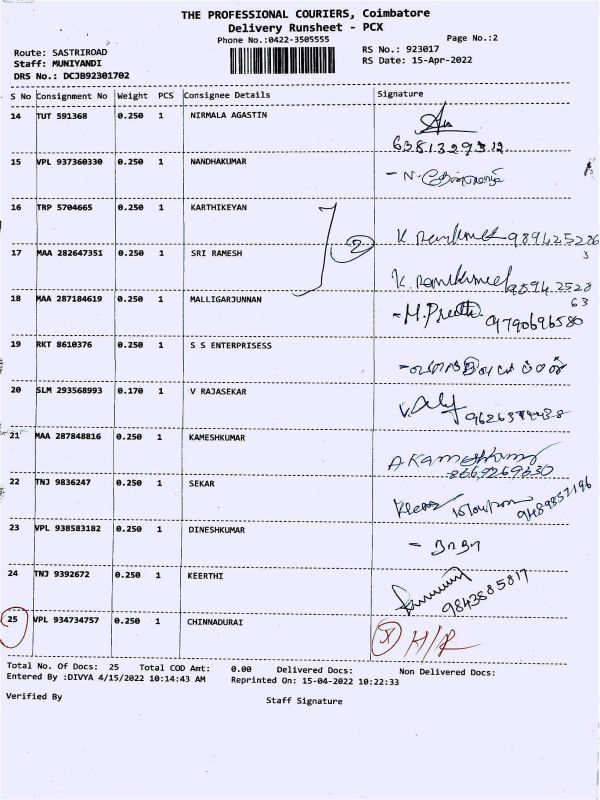 THE PROFESSIONAL COURIERS, Coimbatore
Delivery Runsheet - PCX
Phone No.:0422-3505555
Page No.:2
Route: SASTRIROAD
RS No.: 923017
Staff: MUNIYANDI
RS Date: 15-Apr-2022
DRS No.: DCJB92301702
S No Consignment No Weight PCS Consignee Details Signature
14 TUT 591368 0.250 1 NIRMALA AGASTIN
6381329312
15 VPL 937360330 0.250 1 NANDHAKUMAR
16 TRP 5704665 0.250 1 KARTHIKEYAN
2
17 MAA 282647351 0.250 1 SRI RAMESH
18 MAA 287184619 0.250 1 MALLIGARJUNNAN
9790696580
19 RKT 8610376 0.250 1 S S ENTERPRISESS
20 SLM 293568993 0.170 1 V RAJASEKAR
21 MAA 287848816 0.250 1 KAMESHKUMAR
22 TNJ 9836247 0.250 1 SEKAR
23 VPL 938583182 0.250 1 DINESHKUMAR
24 TNJ 9392672 0.250 1 KEERTHI
9843885817
25 VPL 934734757 0.250 1 CHINNADURAI X H/R
Total No. Of Docs: 25 Total COD Amt: 0.00 Delivered Docs: Non Delivered Docs:
Entered By :DIVYA 4/15/2022 10:14:43 AM Reprinted On: 15-04-2022 10:22:33
Verified By Staff Signature